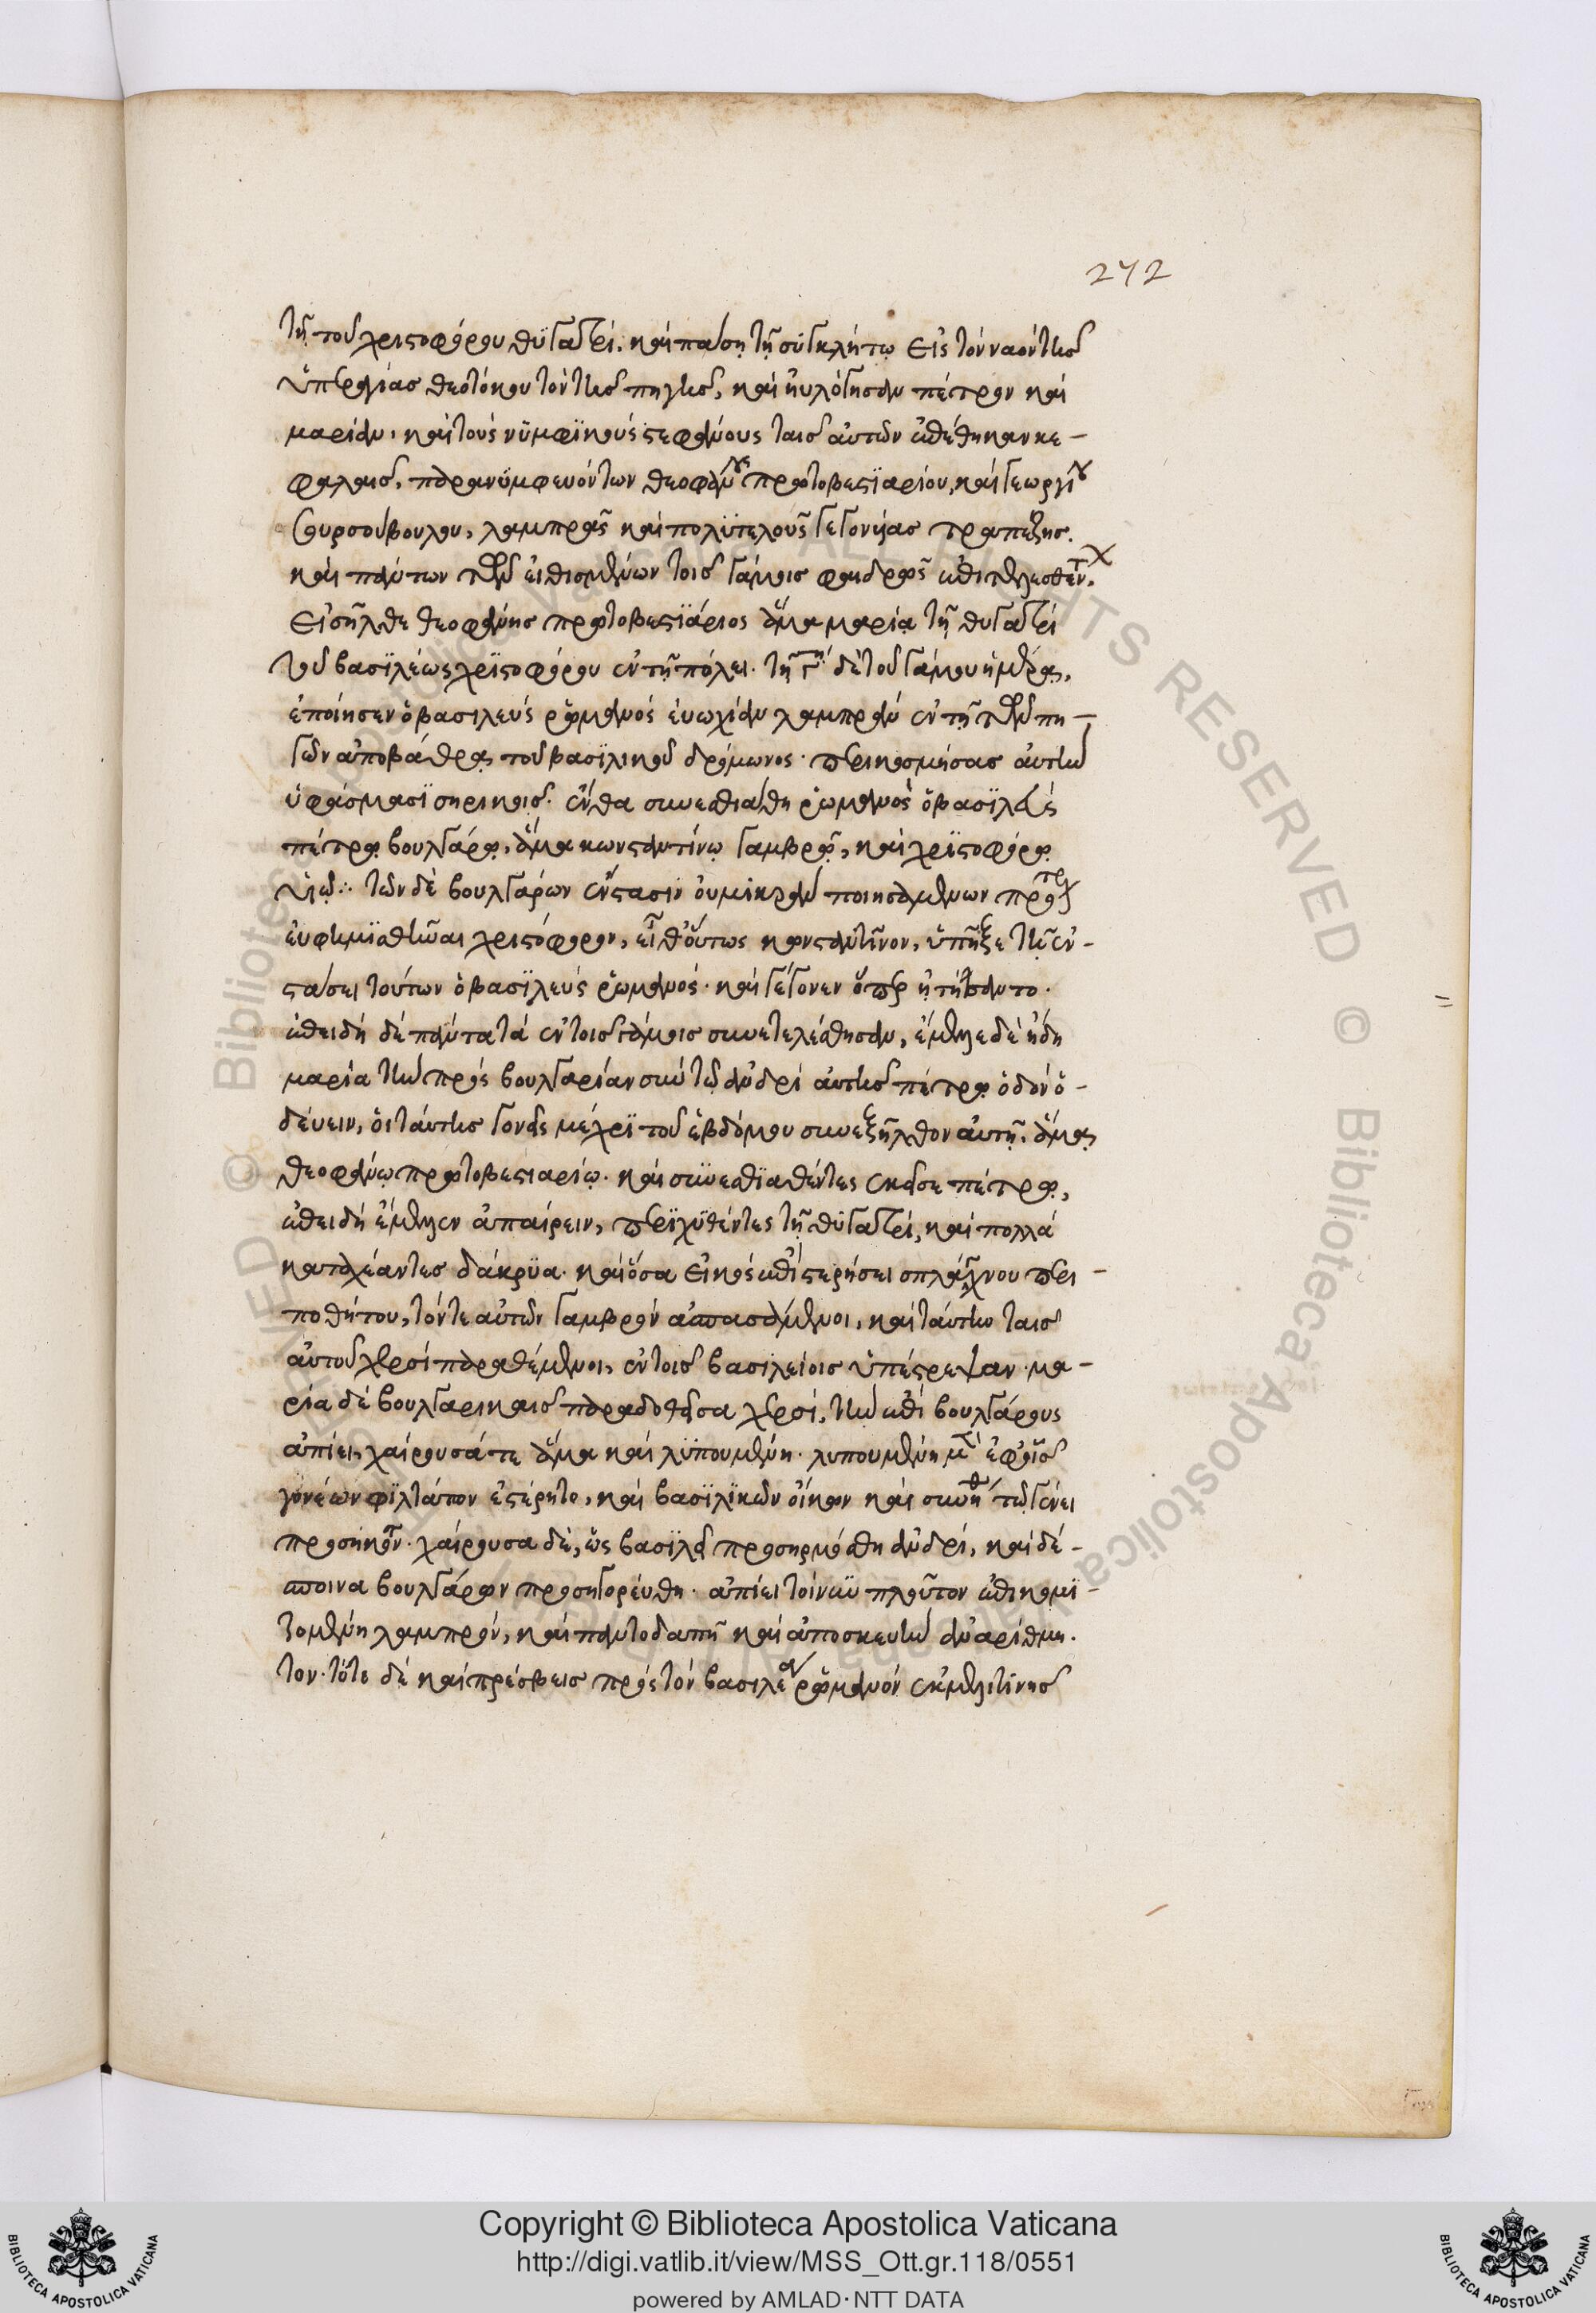 272
τῆ τοῦ χριστοφόρου θϋγατρί. καὶ πάση τῆ σϋγκλήτω εἰς τὸν ναὸν τῆς
ὑπεραγίας θεοτόκου τὸν τῆς πηγῆς, καὶ ηὐλόγησαν πέτρον καὶ
μαρίαν, καὶ τοὺς νϋμφϊκοὺς στεφάνους ταῖς αὐτῶν ἐπέθηκαν κε-
φαλαῖς, παρανϋμφευόντων θεοφάνους πρωτοβεστϊαρίου, καὶ γεωργίου
σουρσουβούλου, λαμπρᾶς καὶ πολϋτελοῦς γεγονυίας τραπέζης.
καὶ πάντων τῶν εἰθισμένων τοῖς γάμοις φαιδρῶς ἐπιτελεσθέντων,
εἰσῆλθε θεοφάνης πρωτοβεστϊάριος ἅμα μαρία τῆ θυγατρὶ
τοῦ βασϊλέως χρϊστοφόρου ἐν τῆ πόλει. τῆ γ΄ δὲ τοῦ γάμου ἡμέρα,
ἐποίησεν ὁ βασιλεὺς ῥωμανὸς εὐωχίαν λαμπρὰν ἐν τῆ τῶν πη-
γῶν ἀποβάθρα τοῦ βασϊλικοῦ δρόμωνος. περικοσμήσας αὐτὴν
ὑφάσμασϊ σηρικοῖς. ἔνθα συνεστιάθη ῥωμανὸς ὁ βασϊλεὺς
πέτρω βουλγάρω, ἅμα κωνσταντίνω γαμβρῶ, καὶ χρϊστοφόρω
ὑιῶ. τῶν δὲ βουλγάρων ἔνστασιν οὐ μικρὰν ποιησαμένων πρότερον
εὐφημϊσθῆναι χριστόφορον, εἶθ' οὕτως κωνσταντῖνον, ὑπῆξε τῆ ἐν-
στάσει τούτων ὁ βασϊλεὺς ῥωμανός. καὶ γέγονεν ὅπερ ἠτήσαντο.
ἐπειδὴ δὲ πάντα τὰ ἐν τοῖς γάμοις συνετελέσθησαν, ἔμελλε δὲ ἤδη
μαρία τὴν πρὸς βουλγαρίαν σὺν τῶ ἀνδρὶ αὐτῆς πέτρω ὁδὸν ὁ-
δεύειν, οἱ ταύτης γονεῖς μέχρϊ τοῦ ἑβδόμου συνεξῆλθον αὐτῆ. ἅμα
θεοφάνω πρωτοβεστιαρίω. καὶ συϊεστϊαθέντες ἐκεῖσε πέτρω,
ἐπειδὴ ἔμελλεν ἀπαίρειν, περϊχϋθέντες τῆ θϋγατρί, καὶ πολλὰ
καταχέαντες δάκρϋα. καὶ ὅσα εἰκὸς ἐπὶ στερήσει σπλάγχνου περι-
ποθήτου, τόν τε αὐτῶν γαμβρὸν ἀσπασάμενοι, καὶ ταύτην ταῖς
αὐτοῦ χερσὶ παραθέμενοι, ἐν τοῖς βασιλείοις ὑπέστρεψαν. μα-
ρία δὲ βουλγαρικαῖς παραδοθεῖσα χερσί, τὴν ἐπὶ βουλγάρους
ἀπίει, χαίρουσά τε ἅμα καὶ λϋπουμένη. λυπουμένη μὲν ἐφ' οἷς
γονέων φϊλτάτων ἐστέρητο, καὶ βασϊλϊκῶν οἴκων καὶ συνηθείας τῶν γένει
προσηκόντων. χαίρουσα δέ, ὡς βασϊλεῖ προσηρμόσθη ἀνδρί, καὶ δέ-
σποινα βουλγάρων προσηγορεύθη. ἀπίει τοίνυν πλοῦτον ἐπικομϊ-
ζομένη λαμπρόν, καὶ παντοδαπῆ καὶ ἀποσκευὴν ἀναρίθμη-
τον. τότε δὲ καὶ πρέσβεις πρὸς τὸν βασιλέα ῥωμανὸν ἐκ μελιτίνης
Copyright © Biblioteca Apostolica Vaticana
http://digi.vatlib.it/view/MSS_Ott.gr.118/0551
powered by AMLAD·NTT DATA